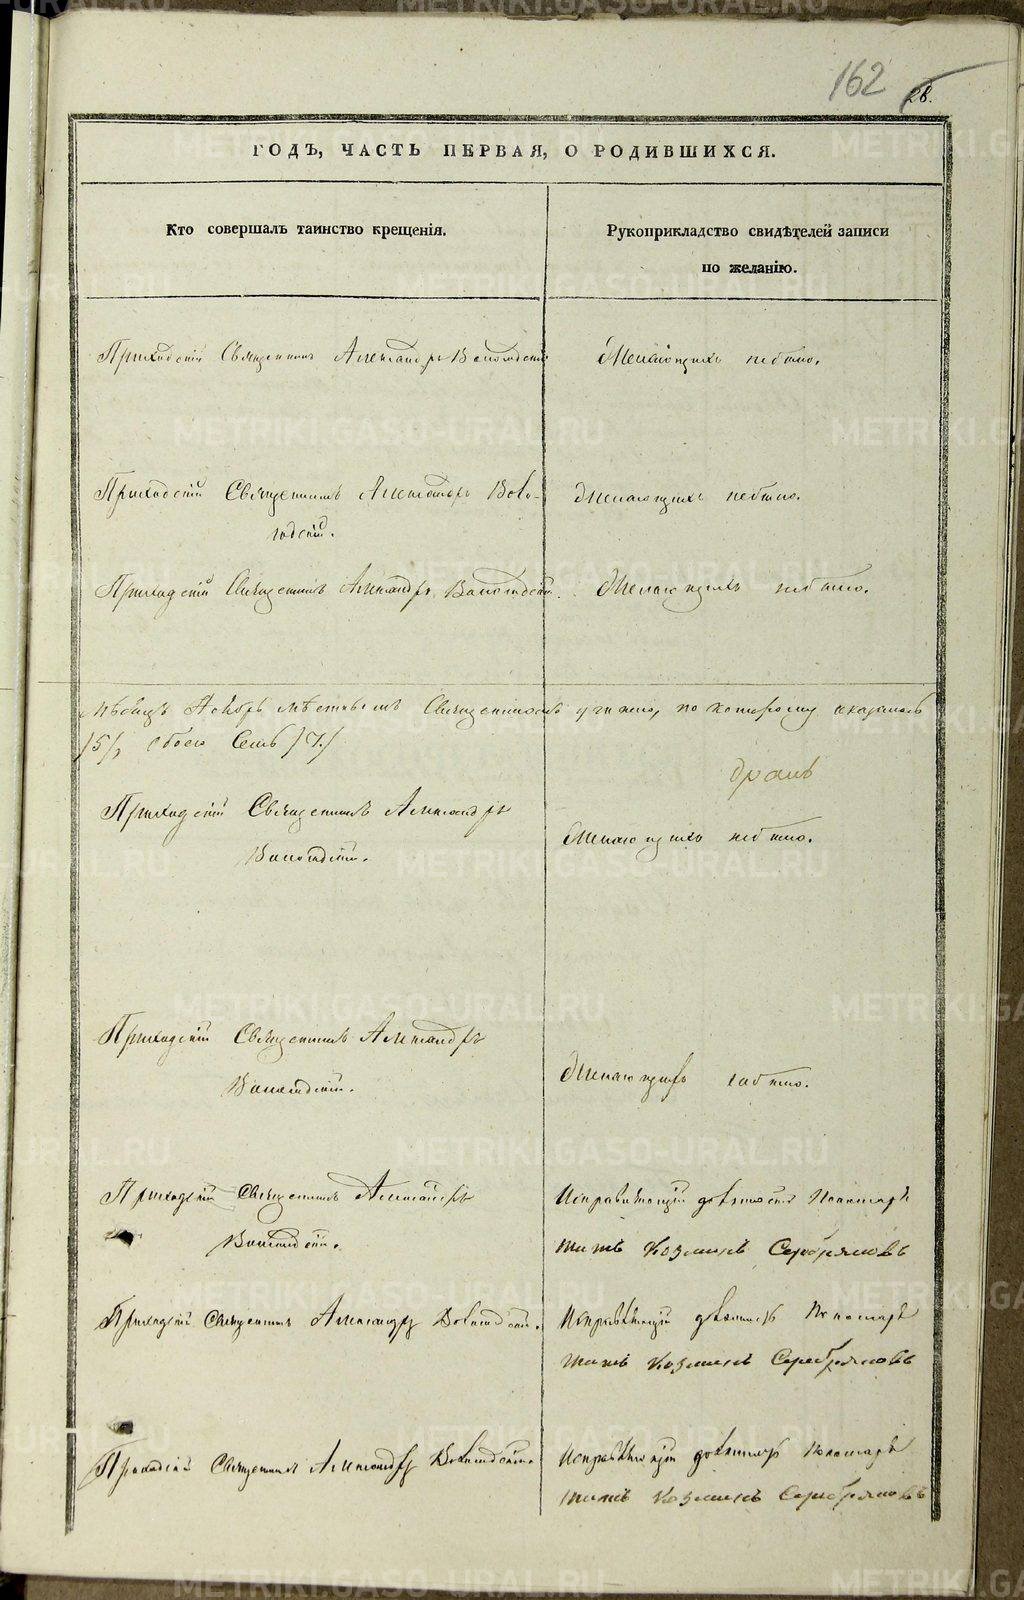 162
28.
ГОДЪ, ЧАСТЬ ПЕРВАЯ, О РОДИВШИХСЯ.
Кто совершалъ таинство крещенія.
Рукоприкладство свидѣтелей записи
по желанію.
Приходскій Священникъ Александръ Вологодскій
Желающихъ небыло.
Приходскій Священникъ Александръ Воло-
годскій.
Желающихъ небыло.
Приходскій Священникъ Александръ Вологодскій.
Желающихъ небыло.
Священникомъ по которому оказалось
/5/, обоего Семь /7./
бракъ
Приходскій Священникъ Александръ
Вологодскій.
Желающихъ небыло.
Приходскій Священникъ Александръ
Вологодскій.
Желающихъ небыло.
Приходскій Священникъ Александръ
Вологодскій.
Исправляющій должность Пономаря
Козминъ Серебряковъ
Приходскій Священникъ Александръ Вологодскій.
Исправляющій должность Пономаря
Козминъ Серебряковъ
Приходскій Священникъ Александръ Вологодскій.
Исправляющій должность Пономаря
Козминъ Серебряковъ
METRIKI.GASO-URAL.RU